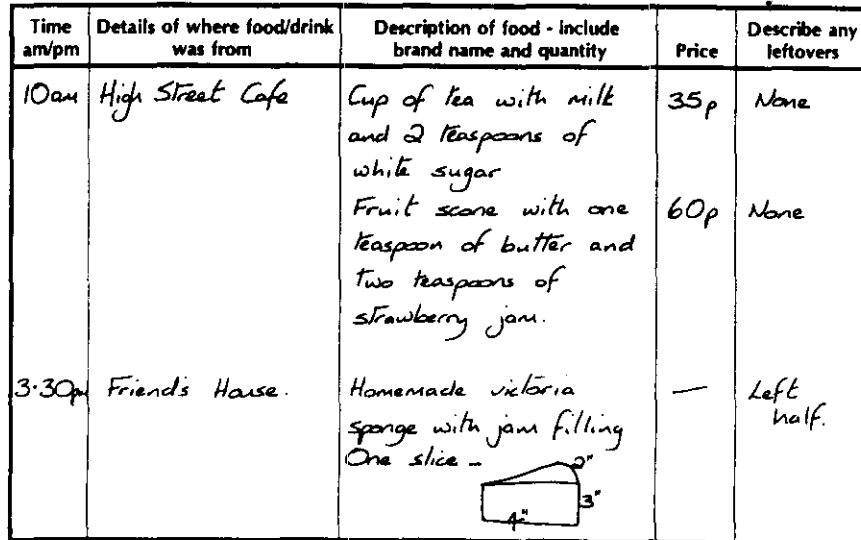 Time am/pm
Details of where food/drink was from
Description of food - include brand name and quantity
Price
Describe any leftovers
10am High Street Cafe Cup of tea with milk 35p None
and 2 teaspoons of
white sugar
Fruit scone with one 60p None
teaspoon of butter and
two teaspoons of
strawberry jam.
3.30pm Friend's House. Homemade victoria — Left
sponge with jam filling half.
One slice -
2"
3"
4"